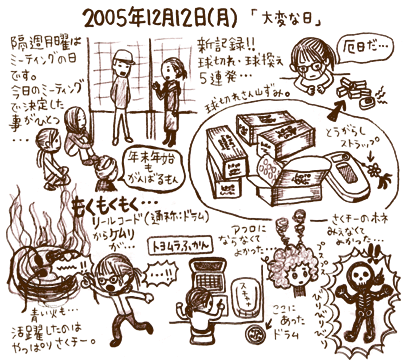 2005年12月12日(月) 「大変な日」
隔週月曜は
ミーティングの日
です。
今日のミーティング
で決定した
事がひとつ
…
年末年始
も
がんばるもん
新記録!!
球切れ・球換え
5連発…
厄日だ…
球切れさん山ずみ。
とうがらし
ストラップ。
もくもくもく…
リールコード(通称・ドラム)
からケムリ
が…
青い火も…
活躍したのは
やっぱりさくチー。
トヨムラふかん
スキャナ
アフロに
ならなくて
よかった…
ここに
あった
ドラム
さくチーのホネ
みえなくて
よかった…
びりびりびり